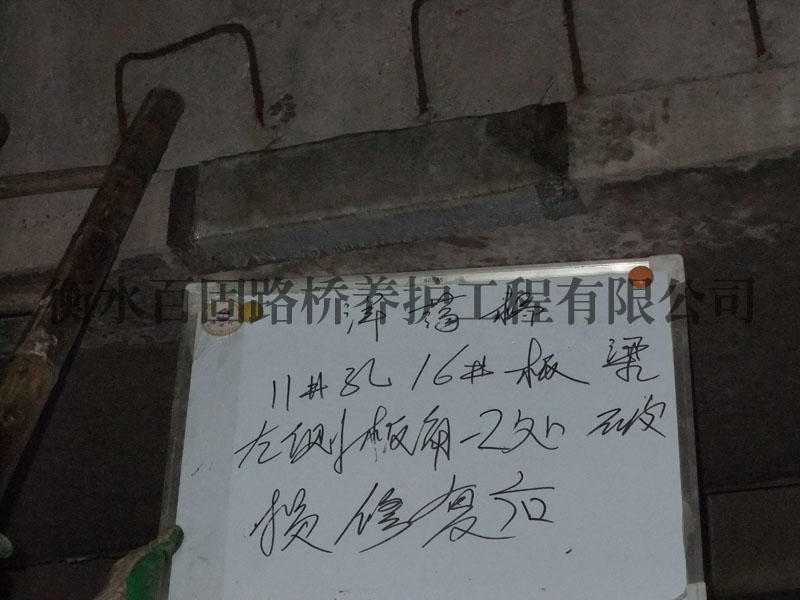 衡水百固路桥养护工程有限公司
11#孔 16#板梁
左侧板角一处破
损修复后